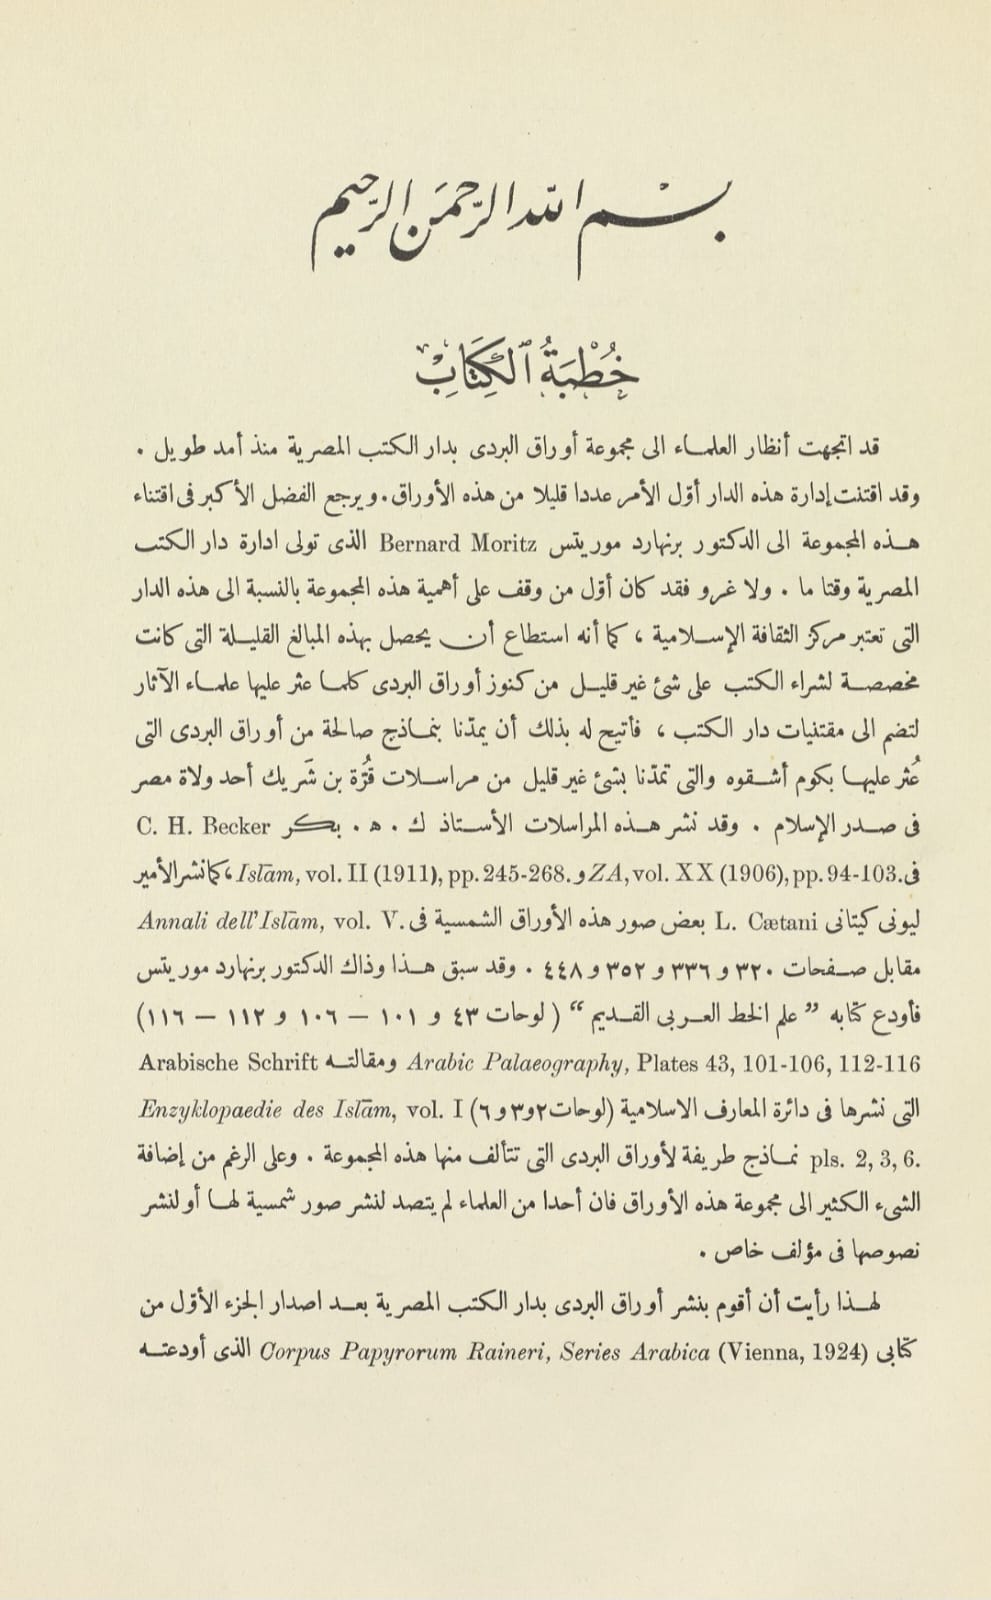 بسم الله الرحمن الرحيم
خُطْبَةُ ٱلْكِتَابِ
قد اتجهت أنظار العلماء الى مجموعة أوراق البردى بدار الكتب المصرية منذ أمد طويل .
وقد اقتنت إدارة هذه الدار أوّل الأمر عددا قليلا من هذه الأوراق . ويرجع الفضل الأكبر فى اقتناء
هذه المجموعة الى الدكتور برنهارد موريتس Bernard Moritz الذى تولى ادارة دار الكتب
المصرية وقتا ما . ولا غرو فقد كان أوّل من وقف على أهمية هذه المجموعة بالنسبة الى هذه الدار
التى تعتبر مركز الثقافة الإسلامية ، كما أنه استطاع أن يحصل بهذه المبالغ القليلة التى كانت
مخصصة لشراء الكتب على شئ غير قليل من كنوز أوراق البردى كلما عثر عليها علماء الآثار
لتضم الى مقتنيات دار الكتب ، فأتيح له بذلك أن يمدّنا بنماذج صالحة من أوراق البردى التى
عُثر عليها بكوم أشقوه والتى تمدّنا بشئ غير قليل من مراسلات قُرّة بن شَريك أحد ولاة مصر
فى صدر الإسلام . وقد نشر هذه المراسلات الأستاذ ك . ه . بكر C. H. Becker
فى .ZA, vol. XX (1906), pp. 94-103 و .Islām, vol. II (1911), pp. 245-268 ، كما نشر الأمير
ليونى كيتانى L. Cætani بعض صور هذه الأوراق الشمسية فى .Annali dell' Islām, vol. V
مقابل صفحات ٣٢٠ و ٣٣٦ و ٣٥٢ و ٤٤٨ . وقد سبق هذا وذاك الدكتور برنهارد موريتس
فأودع كتابه ” علم الخط العربى القديم “ ( لوحات ٤٣ و ١٠١ — ١٠٦ و ١١٢ — ١١٦ )
Arabic Palaeography, Plates 43, 101-106, 112-116 ومقالته Arabische Schrift
التى نشرها فى دائرة المعارف الاسلامية (لوحات ٢ و ٣ و ٦) Enzyklopaedie des Islām, vol. I
pls. 2, 3, 6. نماذج طريفة لأوراق البردى التى تتألف منها هذه المجموعة . وعلى الرغم من إضافة
الشىء الكثير الى مجموعة هذه الأوراق فان أحدا من العلماء لم يتصد لنشر صور شمسية لها أو لنشر
نصوصها فى مؤلف خاص .
لهذا رأيت أن أقوم بنشر أوراق البردى بدار الكتب المصرية بعد اصدار الجزء الأوّل من
كتابى Corpus Papyrorum Raineri, Series Arabica (Vienna, 1924) الذى أودعته